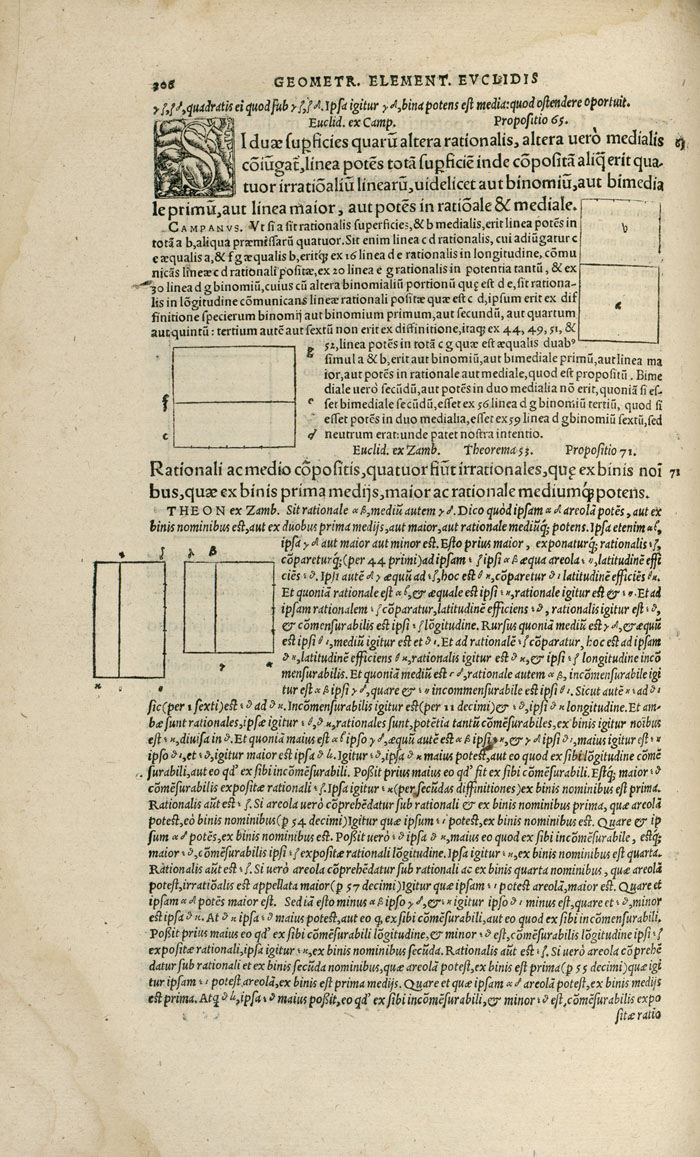 206 GEOMETR. ELEMENT. EVCLIDIS
quadratis ei quod sub . Ipsa igitur , bina potens est media: quod ostendere oportuit.
Euclid. ex Camp. Propositio 65.
SI duæ supficies quarū altera rationalis, altera uerò medialis
cōiūgat̄, linea potēs totā supficiē inde cōpositā aliq̄ erit qua-
tuor irratiōaliū linearū, uidelicet aut binomiū, aut bimedia
le primū, aut linea maior, aut potēs in ratiōale & mediale.
CAMPANVS. Vt si a sit rationalis superficies, & b medialis, erit linea potēs in
totā a b, aliqua præmissarū quatuor. Sit enim linea c d rationalis, cui adiūgatur c
e æqualis a, & f g æqualis b, eritq; ex 16 linea d e rationalis in longitudine, cōmu
nicās lineæ c d rationali positæ, ex 20 linea e g rationalis in potentia tantū, & ex
30 linea d g binomiū, cuius cū altera binomialiū portionū quę est d e, sit rationa-
lis in lōgitudine cōmunicans lineæ rationali positæ quæ est c d, ipsum erit ex dif
finitione specierum binomij aut binomium primum, aut secundū, aut quartum
aut quintū: tertium autē aut sextū non erit ex diffinitione, itaq; ex 44, 49, 51, &
52, linea potēs in totā c g quæ est æqualis duab⁹
simul a & b, erit aut binomiū, aut bimediale primū, aut linea ma
ior, aut potēs in rationale aut mediale, quod est propositū. Bime
diale uerò secūdū, aut potēs in duo medialia nō erit, quoniā si es-
set bimediale secūdū, esset ex 56 linea d g binomiū tertiū, quod si
esset potēs in duo medialia, esset ex 59 linea d g binomiū sextū, sed
neutrum erat: unde patet nostra intentio.
Euclid. ex Zamb. Theorema 53. Propositio 71.
Rationali ac medio cōpositis, quatuor fiūt irrationales, quę ex binis noī 71
bus, quæ ex binis prima medijs, maior ac rationale mediumq́; potens.
THEON ex Zamb. Sit rationale α β, mediū autem γ δ. Dico quòd ipsam α δ areolā potēs, aut ex
binis nominibus est, aut ex duobus prima medijs, aut maior, aut rationale mediūq́; potens. Ipsa etenim α β,
ipsa γ δ aut maior aut minor est. Esto prius maior, exponaturq́; rationalis ε ζ,
cōpareturq́; (per 44 primi) ad ipsam ε ζ ipsi α β æqua areola ε η, latitudinē effi
ciēs ε θ. Ipsi autē γ δ æquū ad ε ζ, hoc est θ η, cōparetur θ ι latitudinē efficiēs θ κ.
Et quoniā rationale est α β, & æquale est ipsi ε η, rationale igitur est & ε η. Et ad
ipsam rationalem ε ζ cōparatur, latitudinē efficiens ε θ, rationalis igitur est ε θ,
& cōmensurabilis est ipsi ε ζ lōgitudine. Rursus quoniā mediū est γ δ, & æquū
est ipsi θ ι, mediū igitur est et θ ι. Et ad rationalē ε ζ cōparatur, hoc est ad ipsam
θ η, latitudinem efficiens θ κ, rationalis igitur est θ κ, & ipsi ε ζ longitudine incō
mensurabilis. Et quoniā mediū est γ δ, rationale autem α β, incōmensurabile igi
tur est α β ipsi γ δ, quare & ε η incommensurabile est ipsi θ ι. Sicut autē ε η ad θ ι
sic (per 1 sexti) est ε θ ad θ κ. Incōmensurabilis igitur est (per 11 decimi) & ε θ, ipsi θ κ. Et am-
bæ sunt rationales, ipsæ igitur ε θ, θ κ, rationales sunt, potētia tantū cōmēsurabiles, ex binis igitur noībus
est ε κ, diuisa in θ. Et quoniā maius est α β ipso γ δ, æquū autē est α β ipsi ε η, & γ δ ipsi θ ι, maius igitur est ε η
ipso θ ι, et ε θ, igitur maior est ipsa θ κ. Igitur ε θ, ipsa θ κ maius potest, aut eo quod ex sibi lōgitudine cōmē
surabili, aut eo qď ex sibi incōmēsurabili. Possit prius maius eo qď fit ex sibi cōmēsurabili. Estq́; maior ε θ
cōmēsurabilis expositæ rationali ε ζ. Ipsa igitur ε κ (per secūdas diffinitiones) ex binis nominibus est prima.
Rationalis aūt est ε ζ. Si areola uerò cōprehēdatur sub rationali & ex binis nominibus prima, quæ areolā
potest, eò binis nominibus (p 54 decimi) Igitur quæ ipsum ε ι potest, ex binis nominibus est. Quare & ip
sum α δ potēs, ex binis nominibus est. Possit uerò ε θ ipsa θ κ, maius eo quod ex sibi incōmēsurabile, estq́;
maior ε θ, cōmēsurabilis ipsi ε ζ expositæ rationali lōgitudine. Ipsa igitur ε κ, ex binis nominibus est quarta.
Rationalis aūt est ε ζ. Si uerò areola cōprehēdatur sub rationali ac ex binis quarta nominibus, quæ areolā
potest, irratiōalis est appellata maior (p 57 decimi) Igitur quæ ipsam ε ι potest areolā, maior est. Quare et
ipsam α δ potēs maior est. Sed iā esto minus α β ipso γ δ, & ε η igitur ipso θ ι minus est, quare et ε θ, minor
est ipsa θ κ. At θ κ ipsa ε θ maius potest, aut eo q, ex sibi cōmēsurabili, aut eo quod ex sibi incōmensurabili.
Possit prius maius eo qď ex sibi cōmēsurabili lōgitudine, & minor ε θ est, cōmēsurabilis lōgitudine ipsi ε ζ
expositæ rationali, ipsa igitur ε κ, ex binis nominibus est secūda. Rationalis aūt est ε ζ. Si uerò areola cōprehē
datur sub rationali et ex binis secūda nominibus, quæ areolā potest, ex binis est prima (p 55 decimi) quæ igi
tur ipsam ε ι potest areolā, ex binis est prima medijs. Quare et quæ ipsam α δ areolā potest, ex binis medijs
est prima. Atq; θ κ, ipsa ε θ maius possit, eo qď ex sibi incōmēsurabili, & minor ε θ est, cōmēsurabilis expo
sitæ ratio